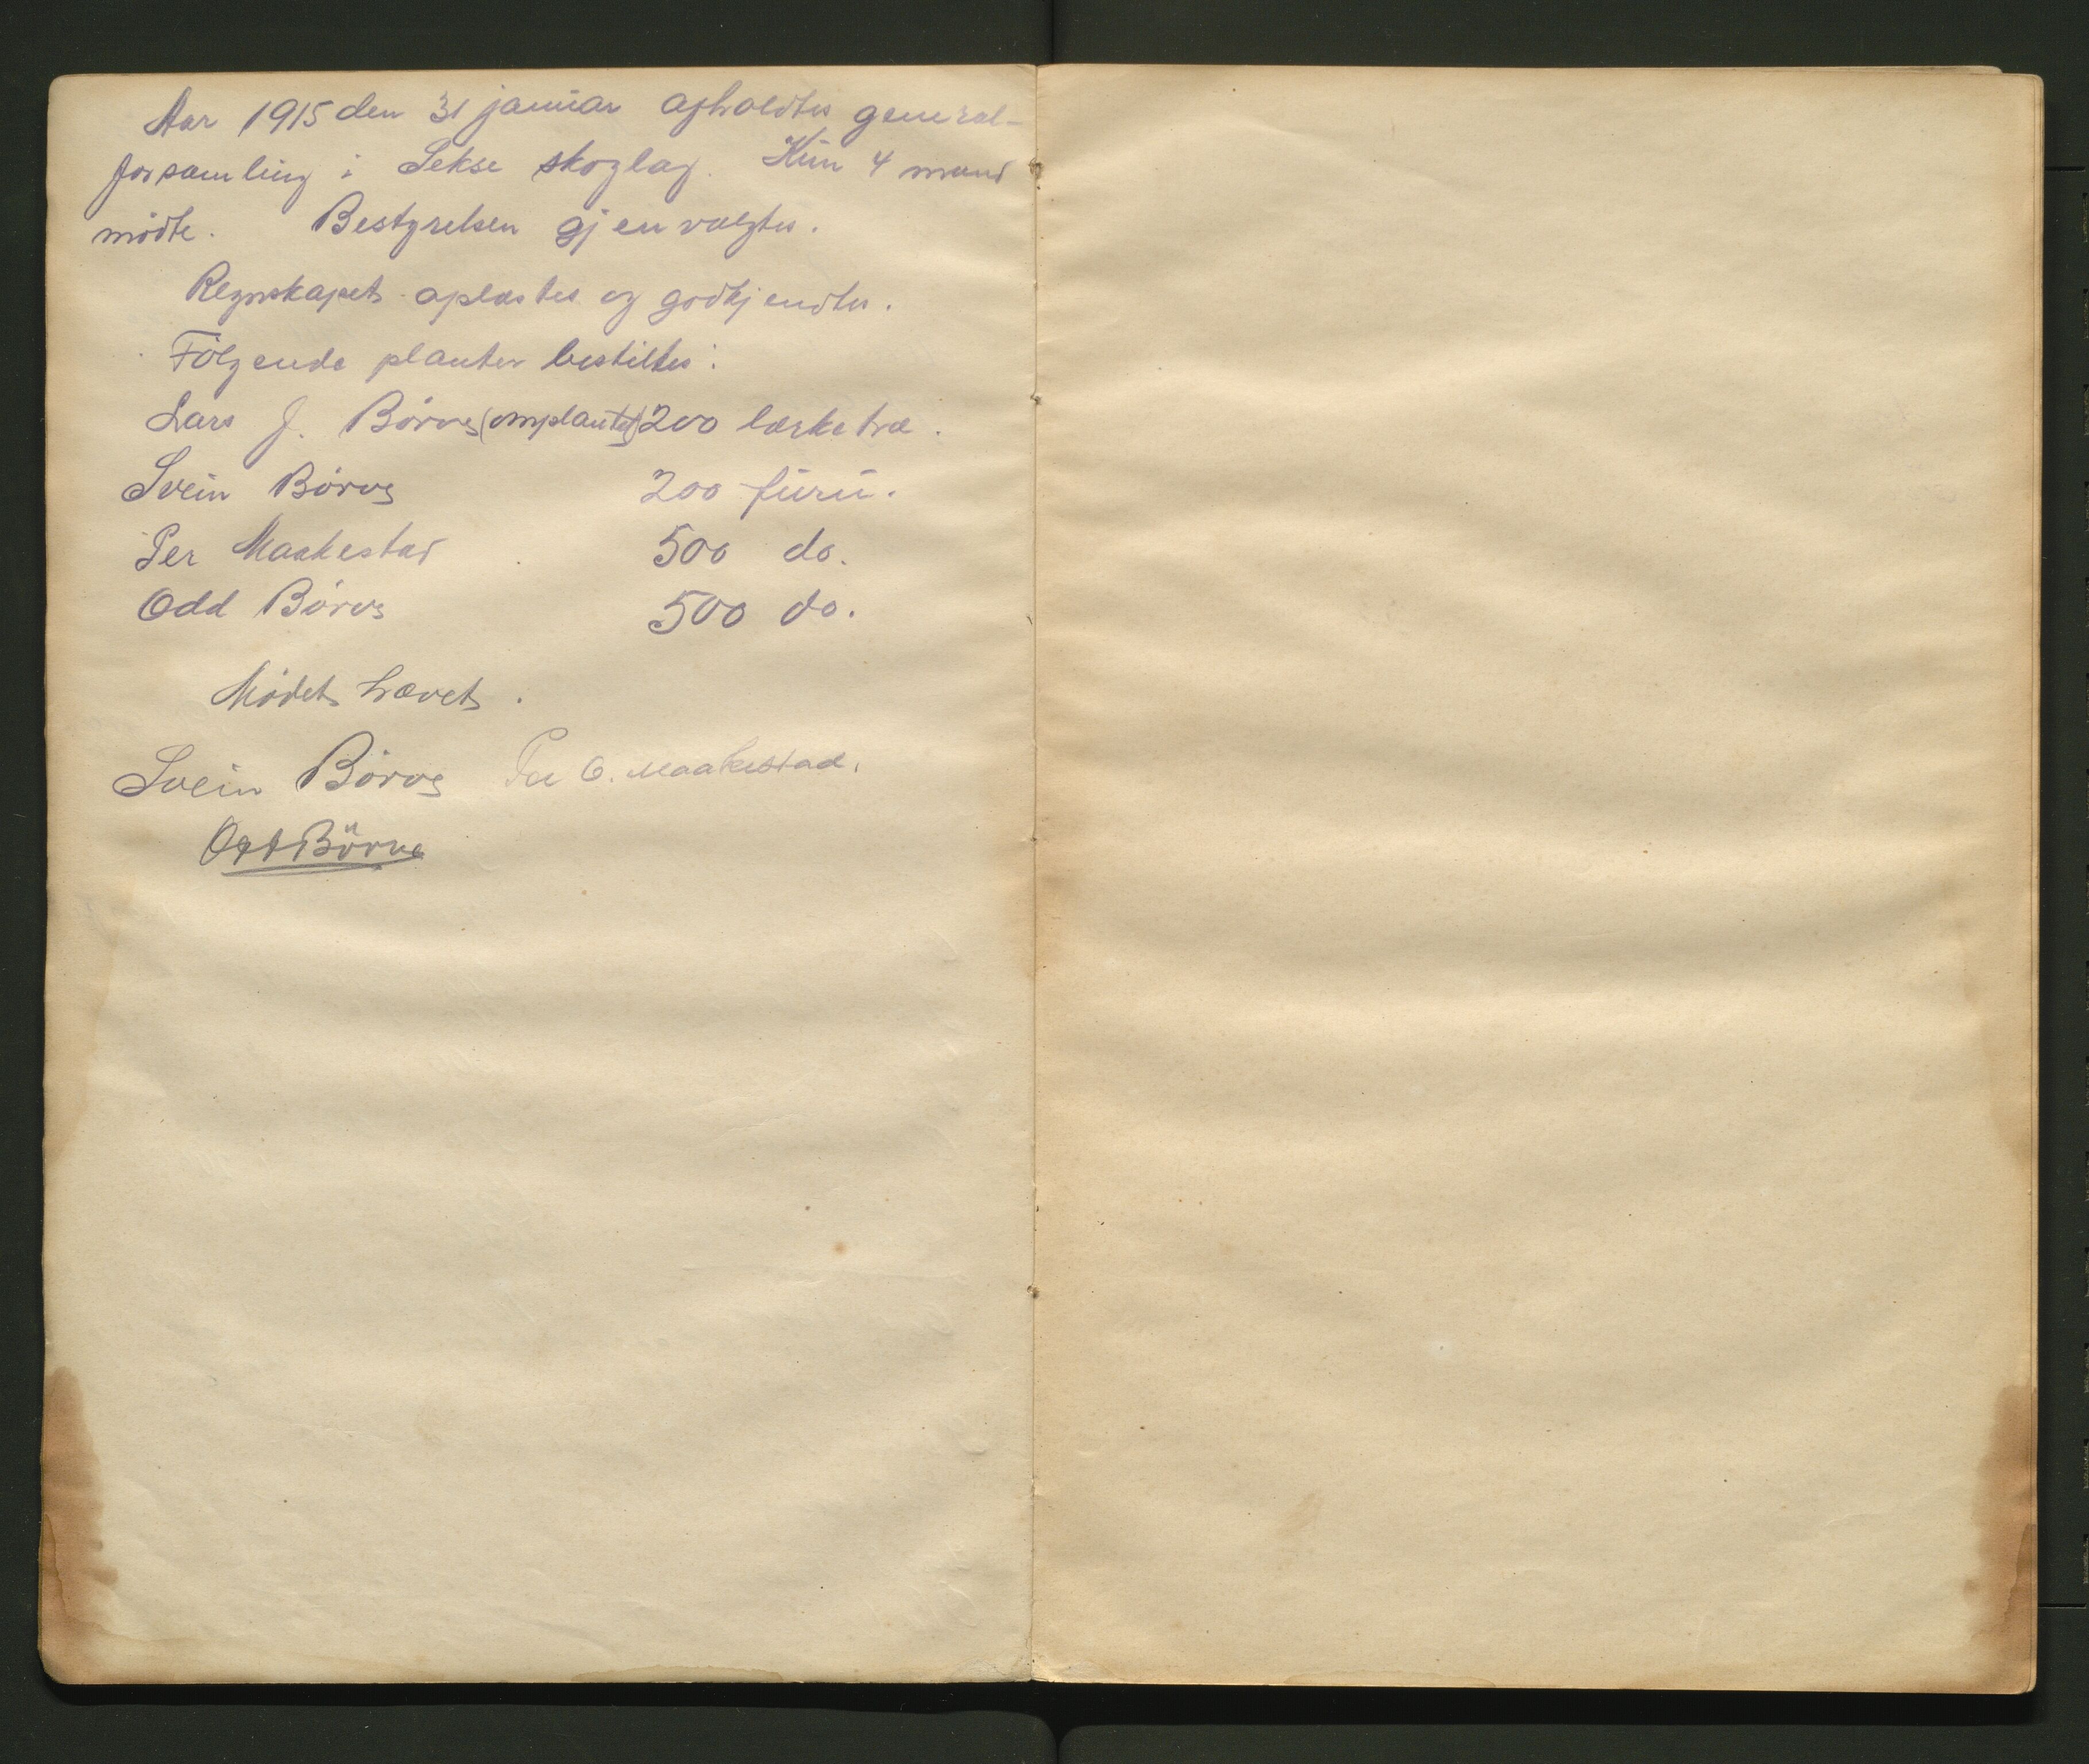 Aar 1915 den 31 januar afholdtes general-
forsamling i Sekse skoglag. Kun 4 mand
mödte. Bestyrelsen gjenvalgtes.
Regnskapet oplæstes og godkjendtes.
Fölgende planter bestiltes:
Lars J. Börve (omplantet) 200 lærketræ.
Svein Børve 200 furu.
Per Maakestad 500 do.
Odd Børve 500 do.
Mødet hævet.
Svein Børve Per O. Maakestad.
Odd Börve